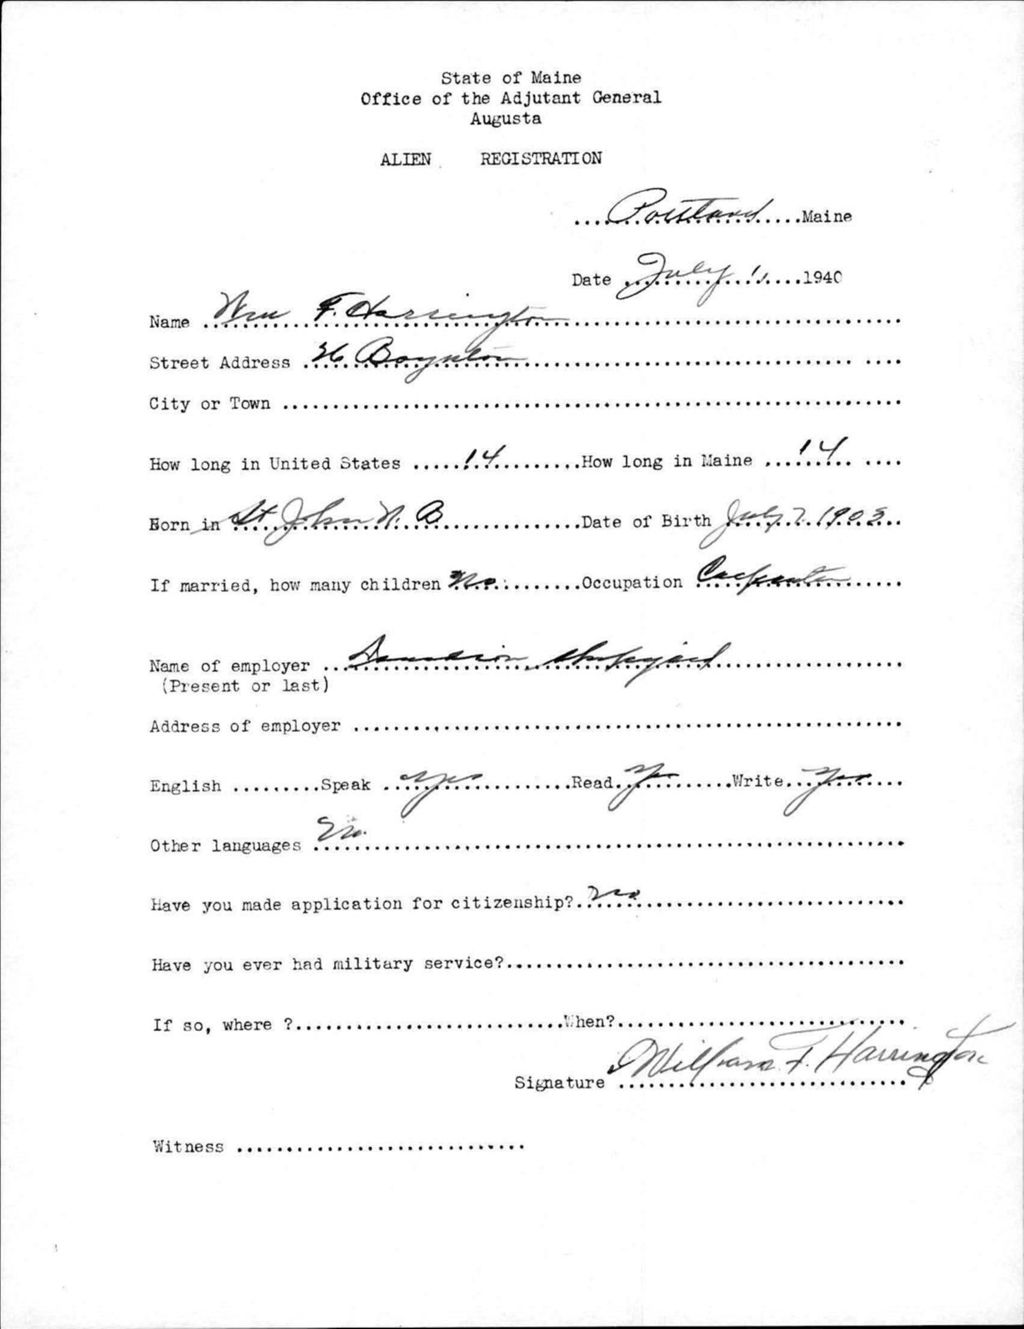 State of Maine
Office of the Adjutant General
Augusta
ALIEN REGISTRATION
Portland Maine
Date July 1, 1940
Name Wm F. Harrington
Street Address Boynton
City or Town
How long in United States 14 How long in Maine 14
Born in St John N. B Date of Birth July 7. 1903
If married, how many children No Occupation Carpenter
Name of employer Shipyard
(Present or last)
Address of employer
English Speak Yes Read Yes Write Yes
Other languages No
Have you made application for citizenship? No
Have you ever had military service?
If so, where ? When?
Signature William F. Harrington
Witness